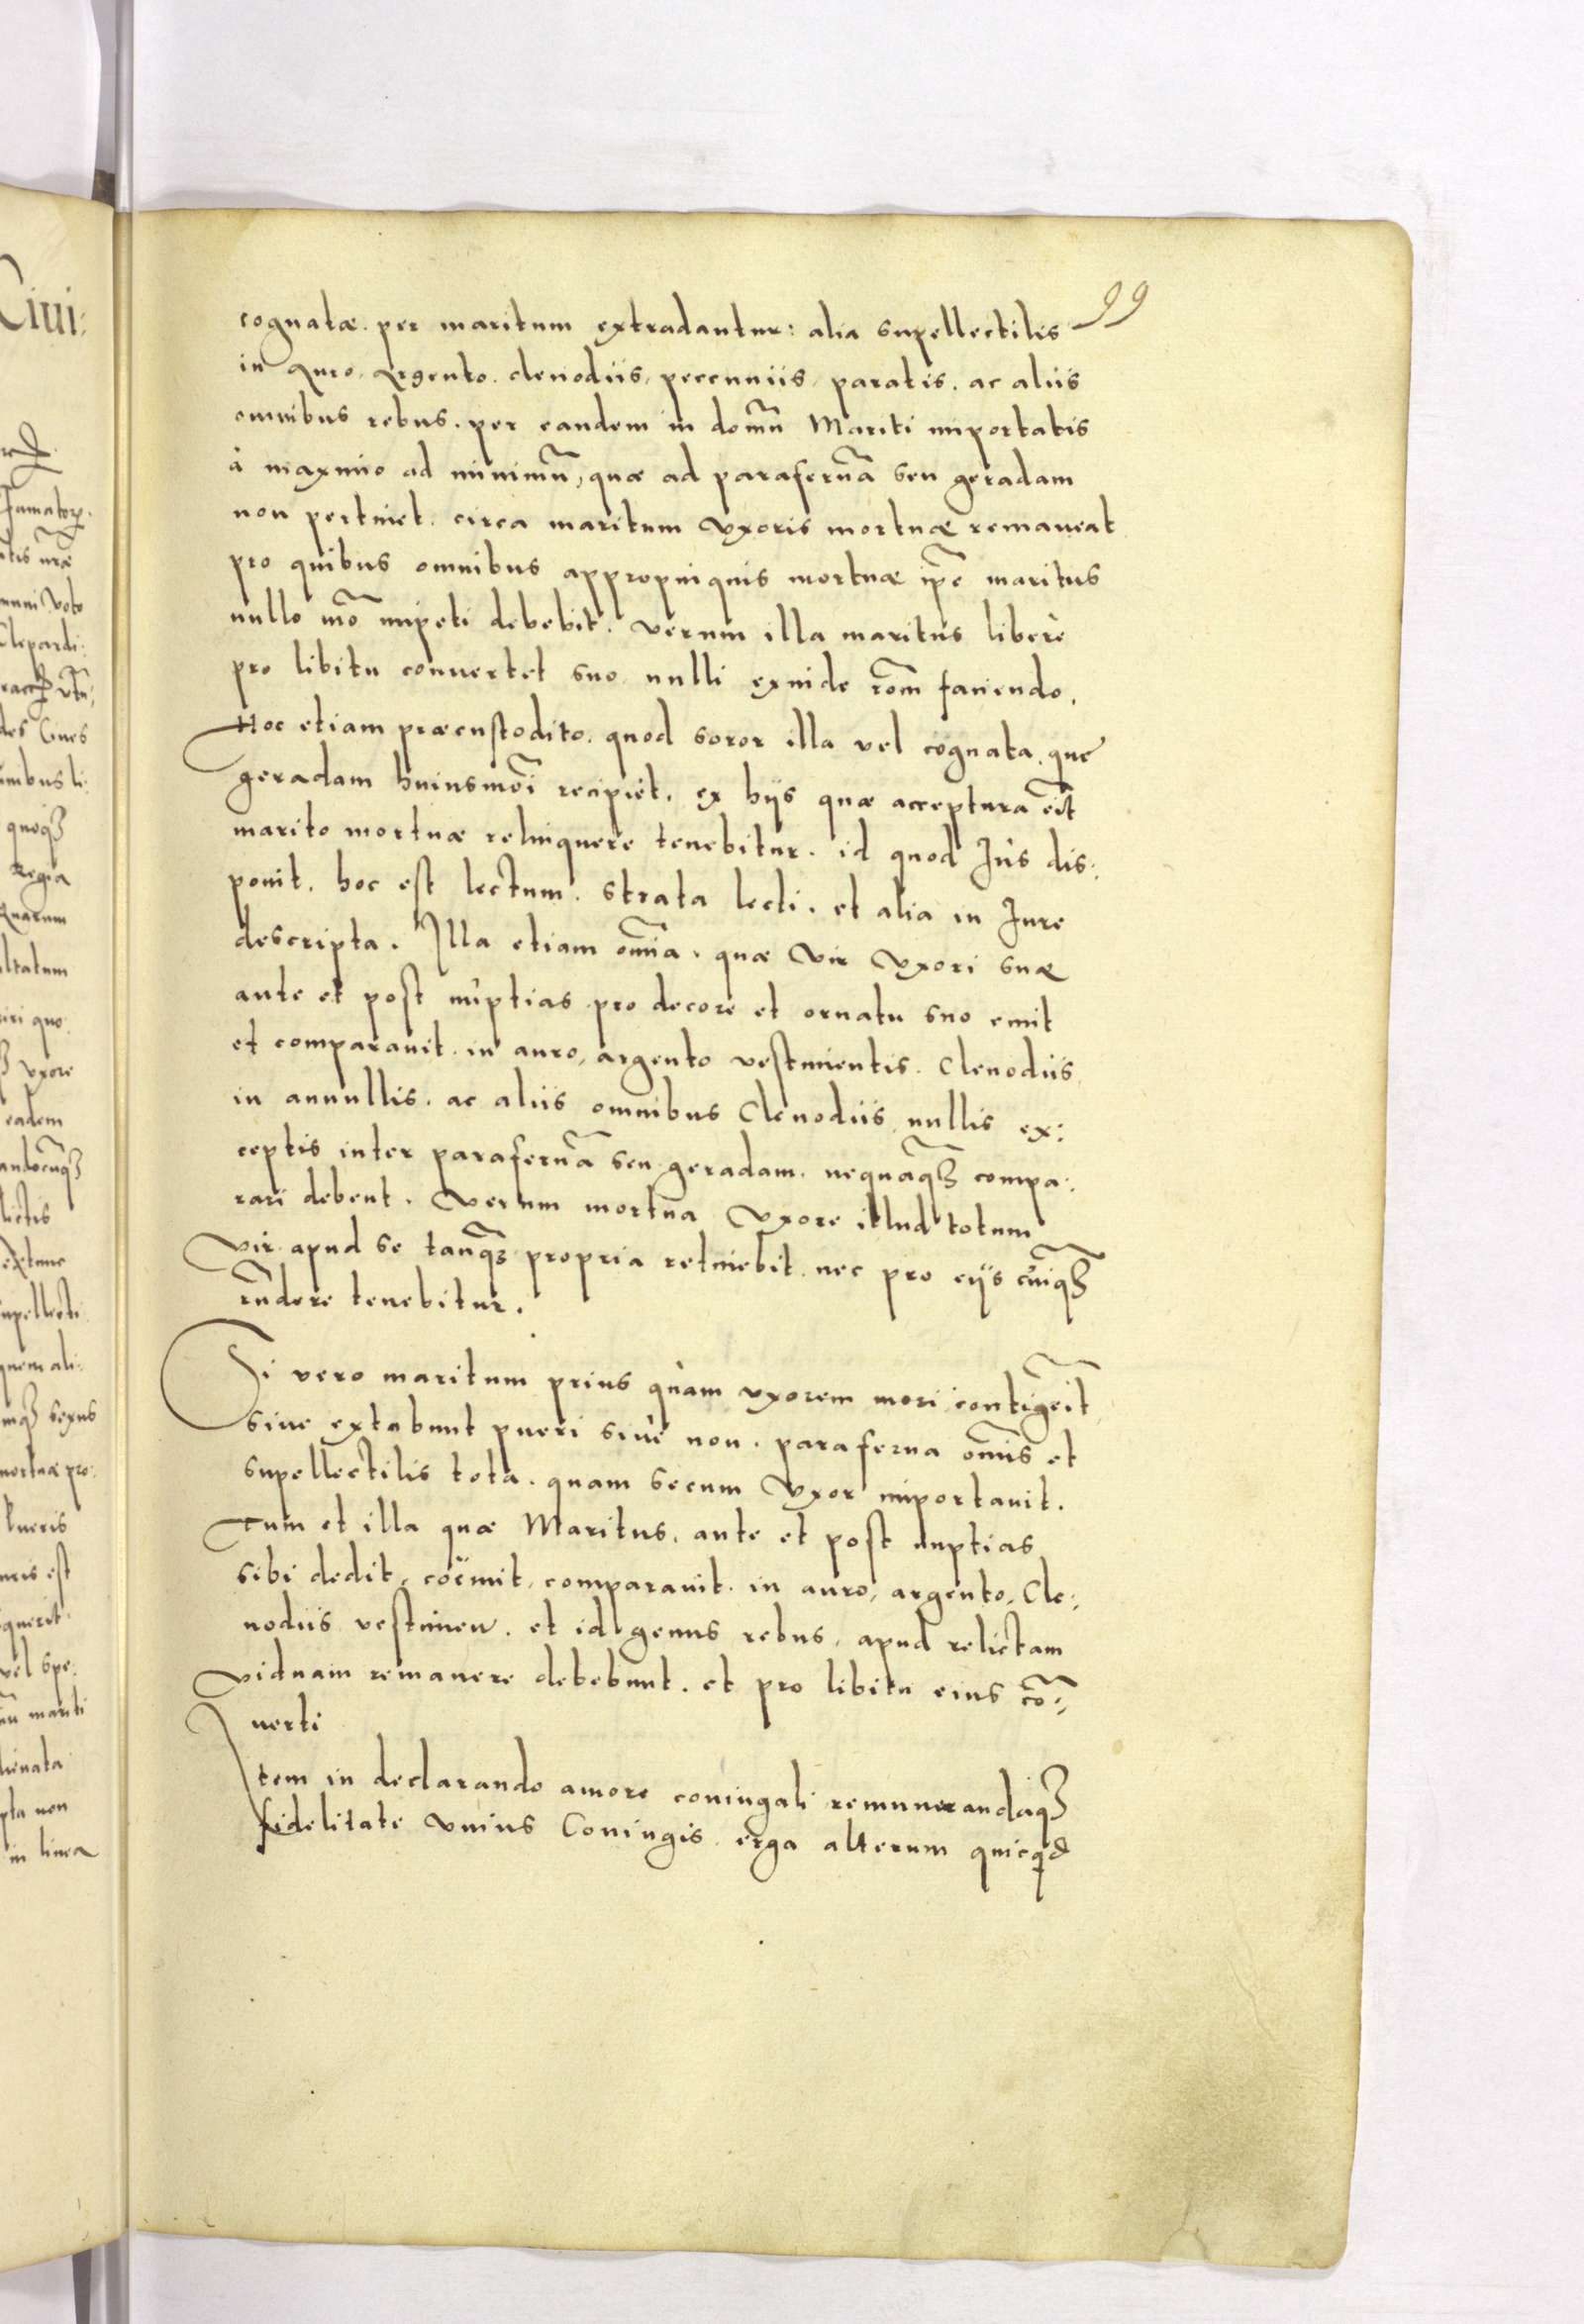 99
cognatæ. per maritum extradantur: alia supellectilis
in Auro, Argento. clenodiis, peccuniis, paratis. ac aliis
omnibus rebus. per eandem in domū Mariti importatis
à maximo ad minimū, quæ ad parafernā seu geradam
non pertinet. circa maritum Vxoris mortuæ remaneat
pro quibus omnibus appropniquis mortuæ ip̄e maritus
nullo mō impeti debebit. verum illa maritus liberè
pro libitu conuertet suo nulli exinde rōm faciendo.
Hoc etiam præcustodito. quod soror illa vel cognata. que
geradam huiusmōi recipiet. ex hijs quæ acceptura eīt
marito mortuæ relinquere tenebitur. id quod Jus dis:
ponit. hoc est lectum. strata lecti. et alia in Jure
descripta. Illa etiam om̄ia. quæ Vir Vxori suæ
ante et post nuptias pro decore et ornatu suo emit
et comparauit. in auro, argento vestimentis. Clenodiis
in annullis. ac aliis omnibus Clenodiis nullis ex:
ceptis inter parafernā seu geradam. nequāqȝ compa:
rari debent. Verum mortua Vxore illud totum
Vir apud se tanqȝ propria retinebit nec pro eijs cuīqȝ
rn̄dere tenebitur.
Si vero maritum prius quam vxorem mori contigeīt
siue extabunt pueri siue non. paraferna om̄is et
supellectilis tota. quam secum Vxor importauit.
Tum et illa quæ Maritus. ante et post nuptias
sibi dedit, coëmit, comparauit. in auro, argento, Cle:
nodiis vestimen. et id genus rebus, apud relictam
viduam remanere debebunt. et pro libitu eius cō:
uerti
Item in declarando amore coniugali remunerandaqȝ
fidelitate Vnius Coniugis erga alterum quicqd